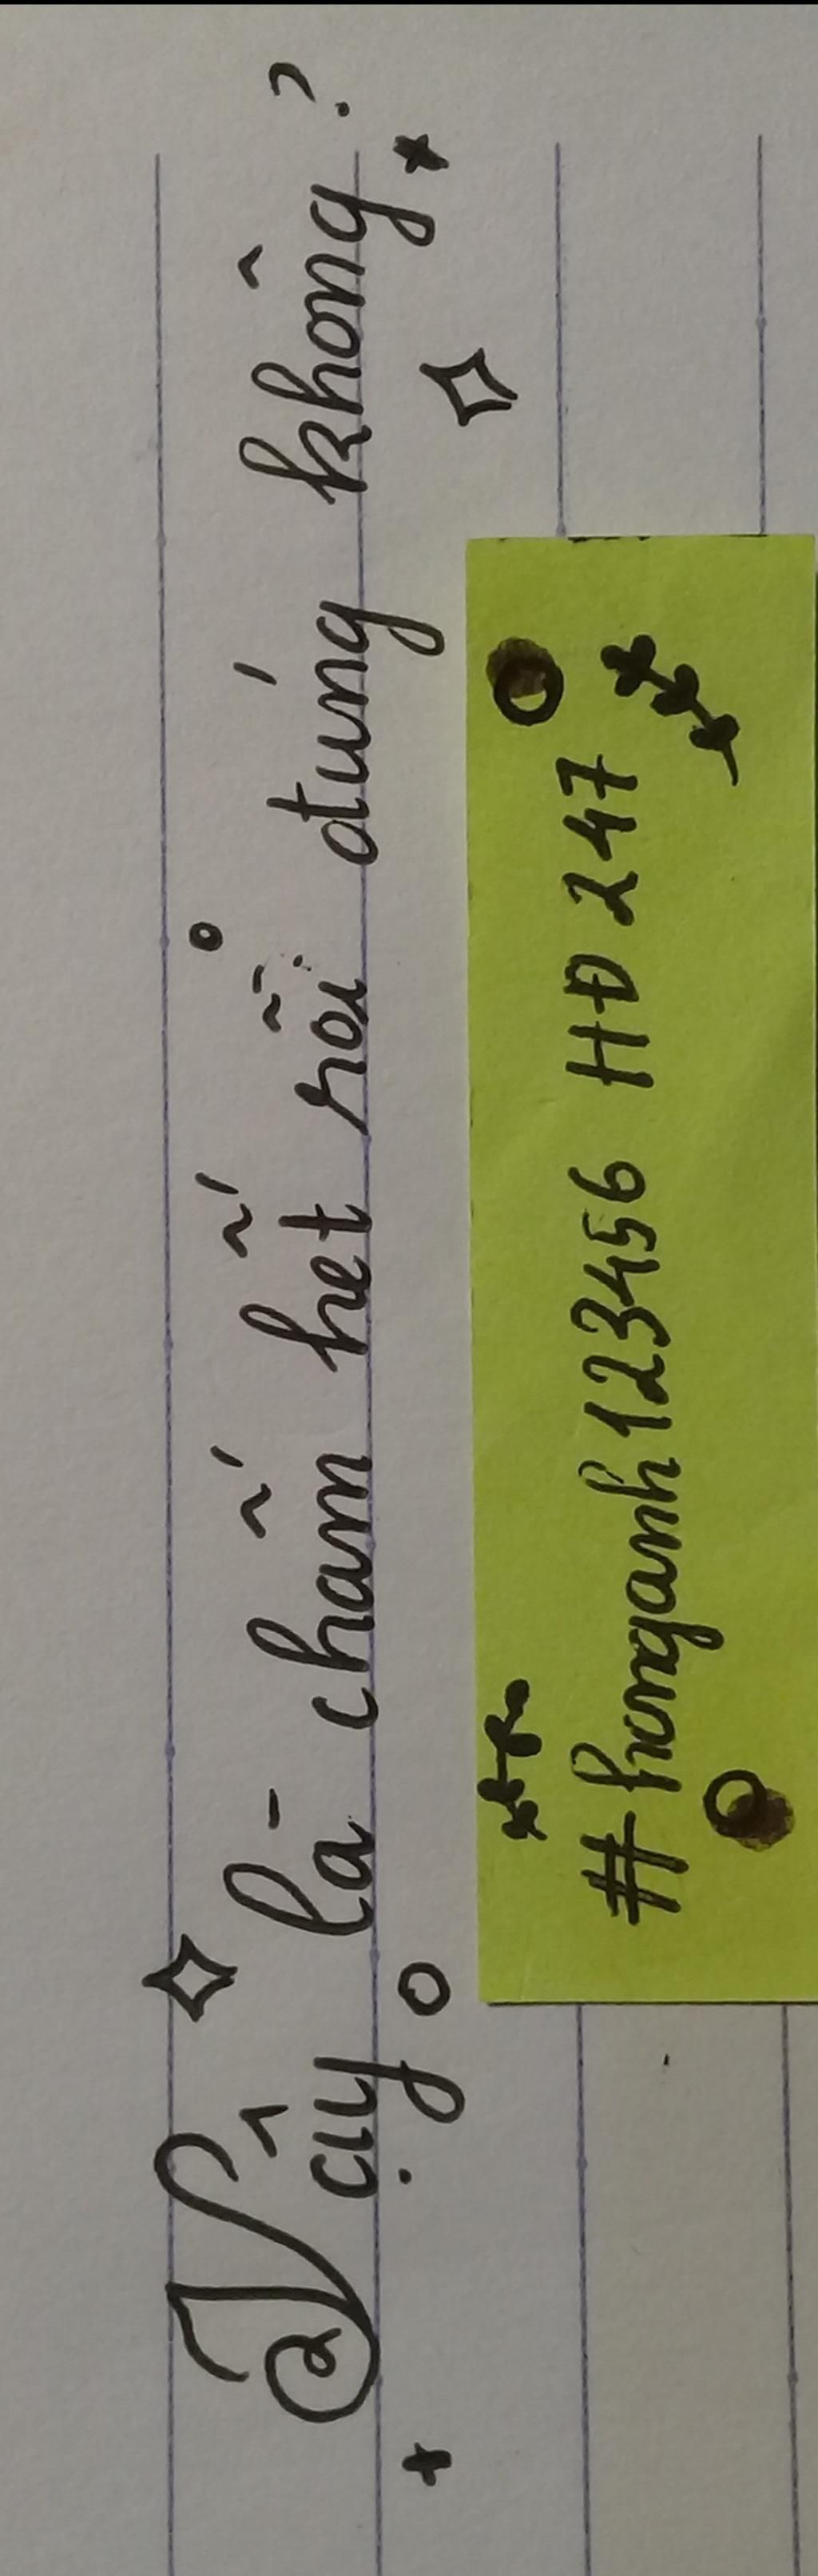 Vậy là chấm hết rồi đúng không?
#hunganh123456 HĐ 247